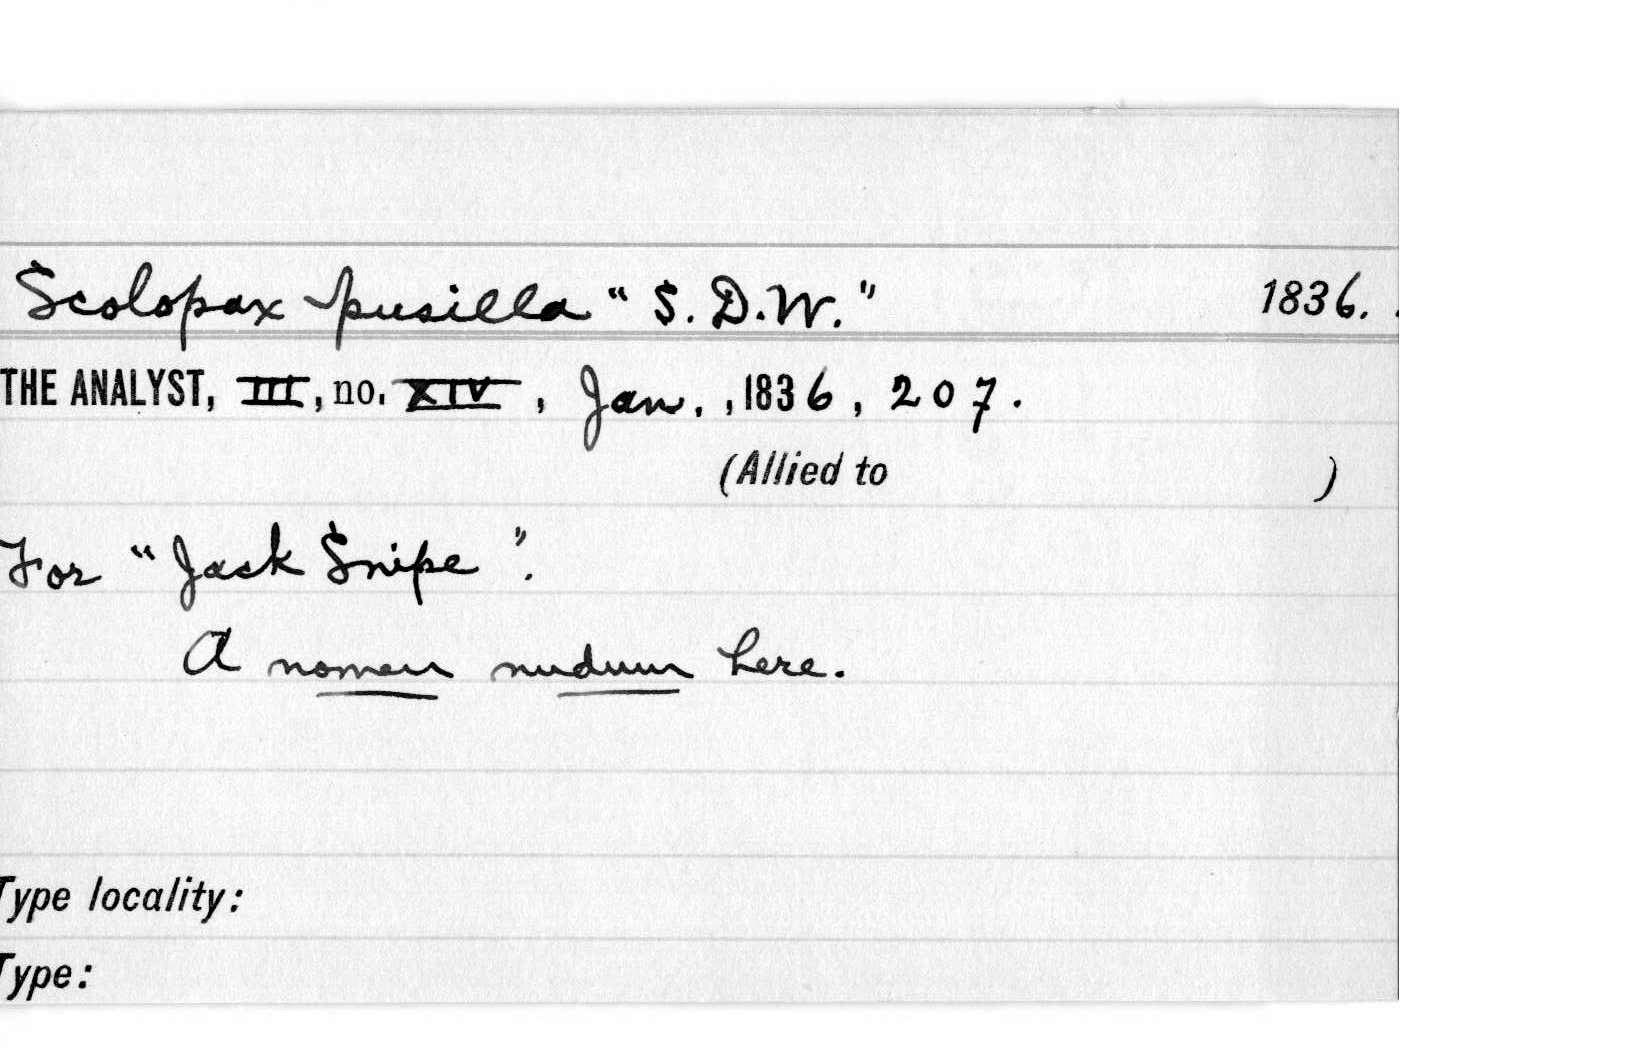 Scolopax pusilla "S.D.W." 1836.
THE ANALYST, III, no. XIV, Jan., 1836, 207.
(Allied to )
For "Jack Snipe".
A nomen nudum here.
Type locality:
Type: